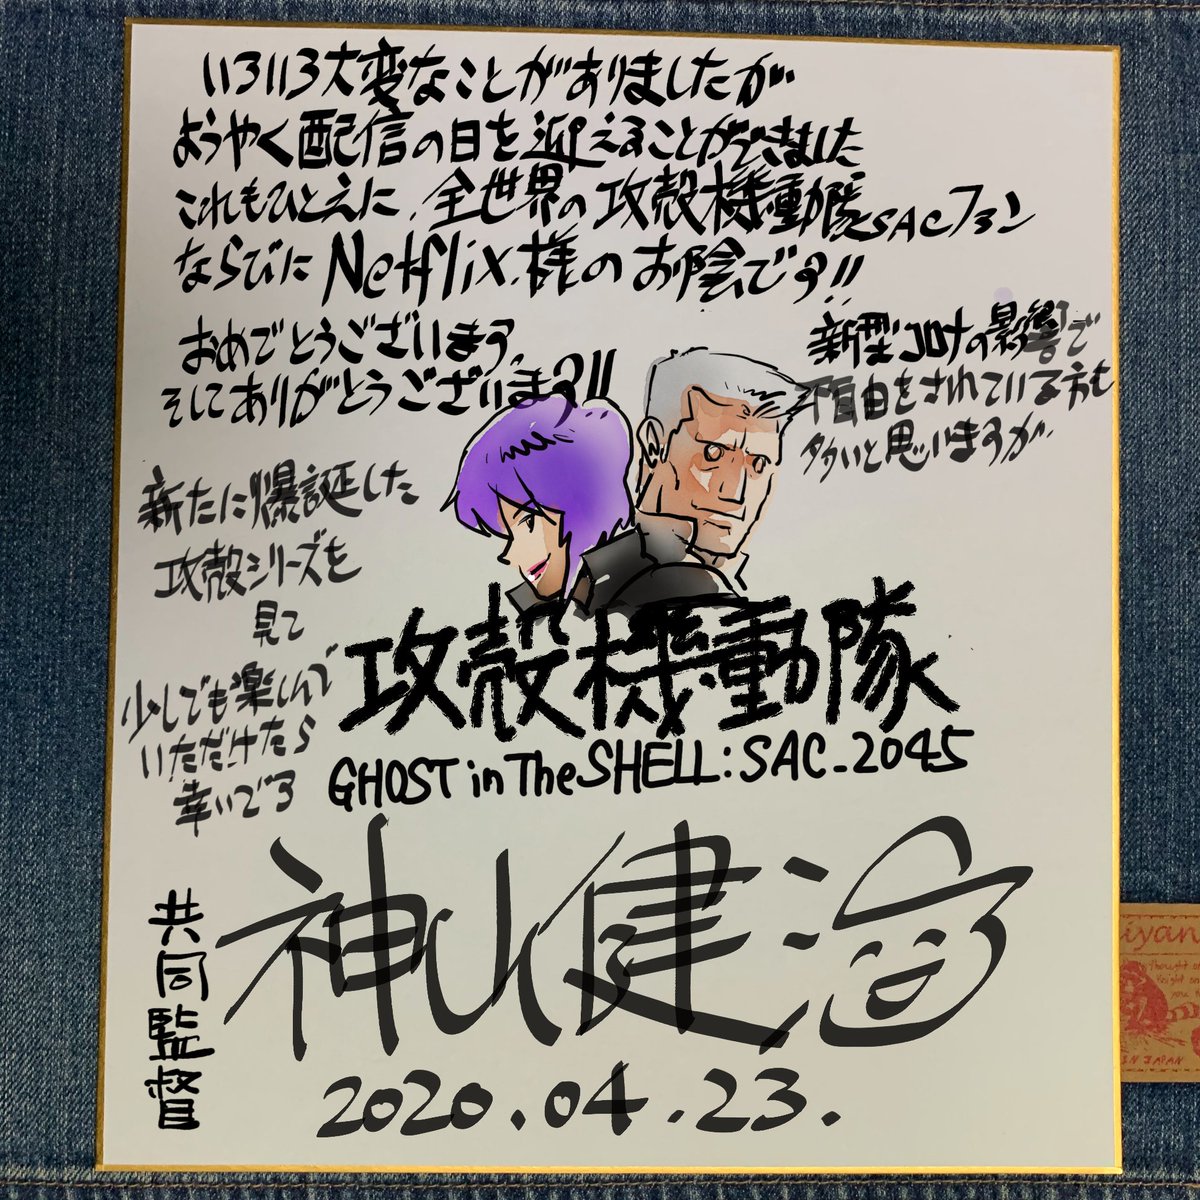 いろいろ大変なことがありましたが
ようやく配信の日を迎えることができました
これもひとえに、全世界の攻殻機動隊SACファン
ならびにNetflix様のお陰です!!
おめでとうございます。
そしてありがとうございます!!
新型コロナの影響で
不自由をされている方も
多いと思いますが、
新たに爆誕した
攻殻シリーズを
見て
少しでも楽しんで
いただけたら
幸いです
攻殻機動隊
GHOST in The SHELL: SAC_2045
神山健治
2020.04.23.
共同監督
iyan
thought
IN JAPAN